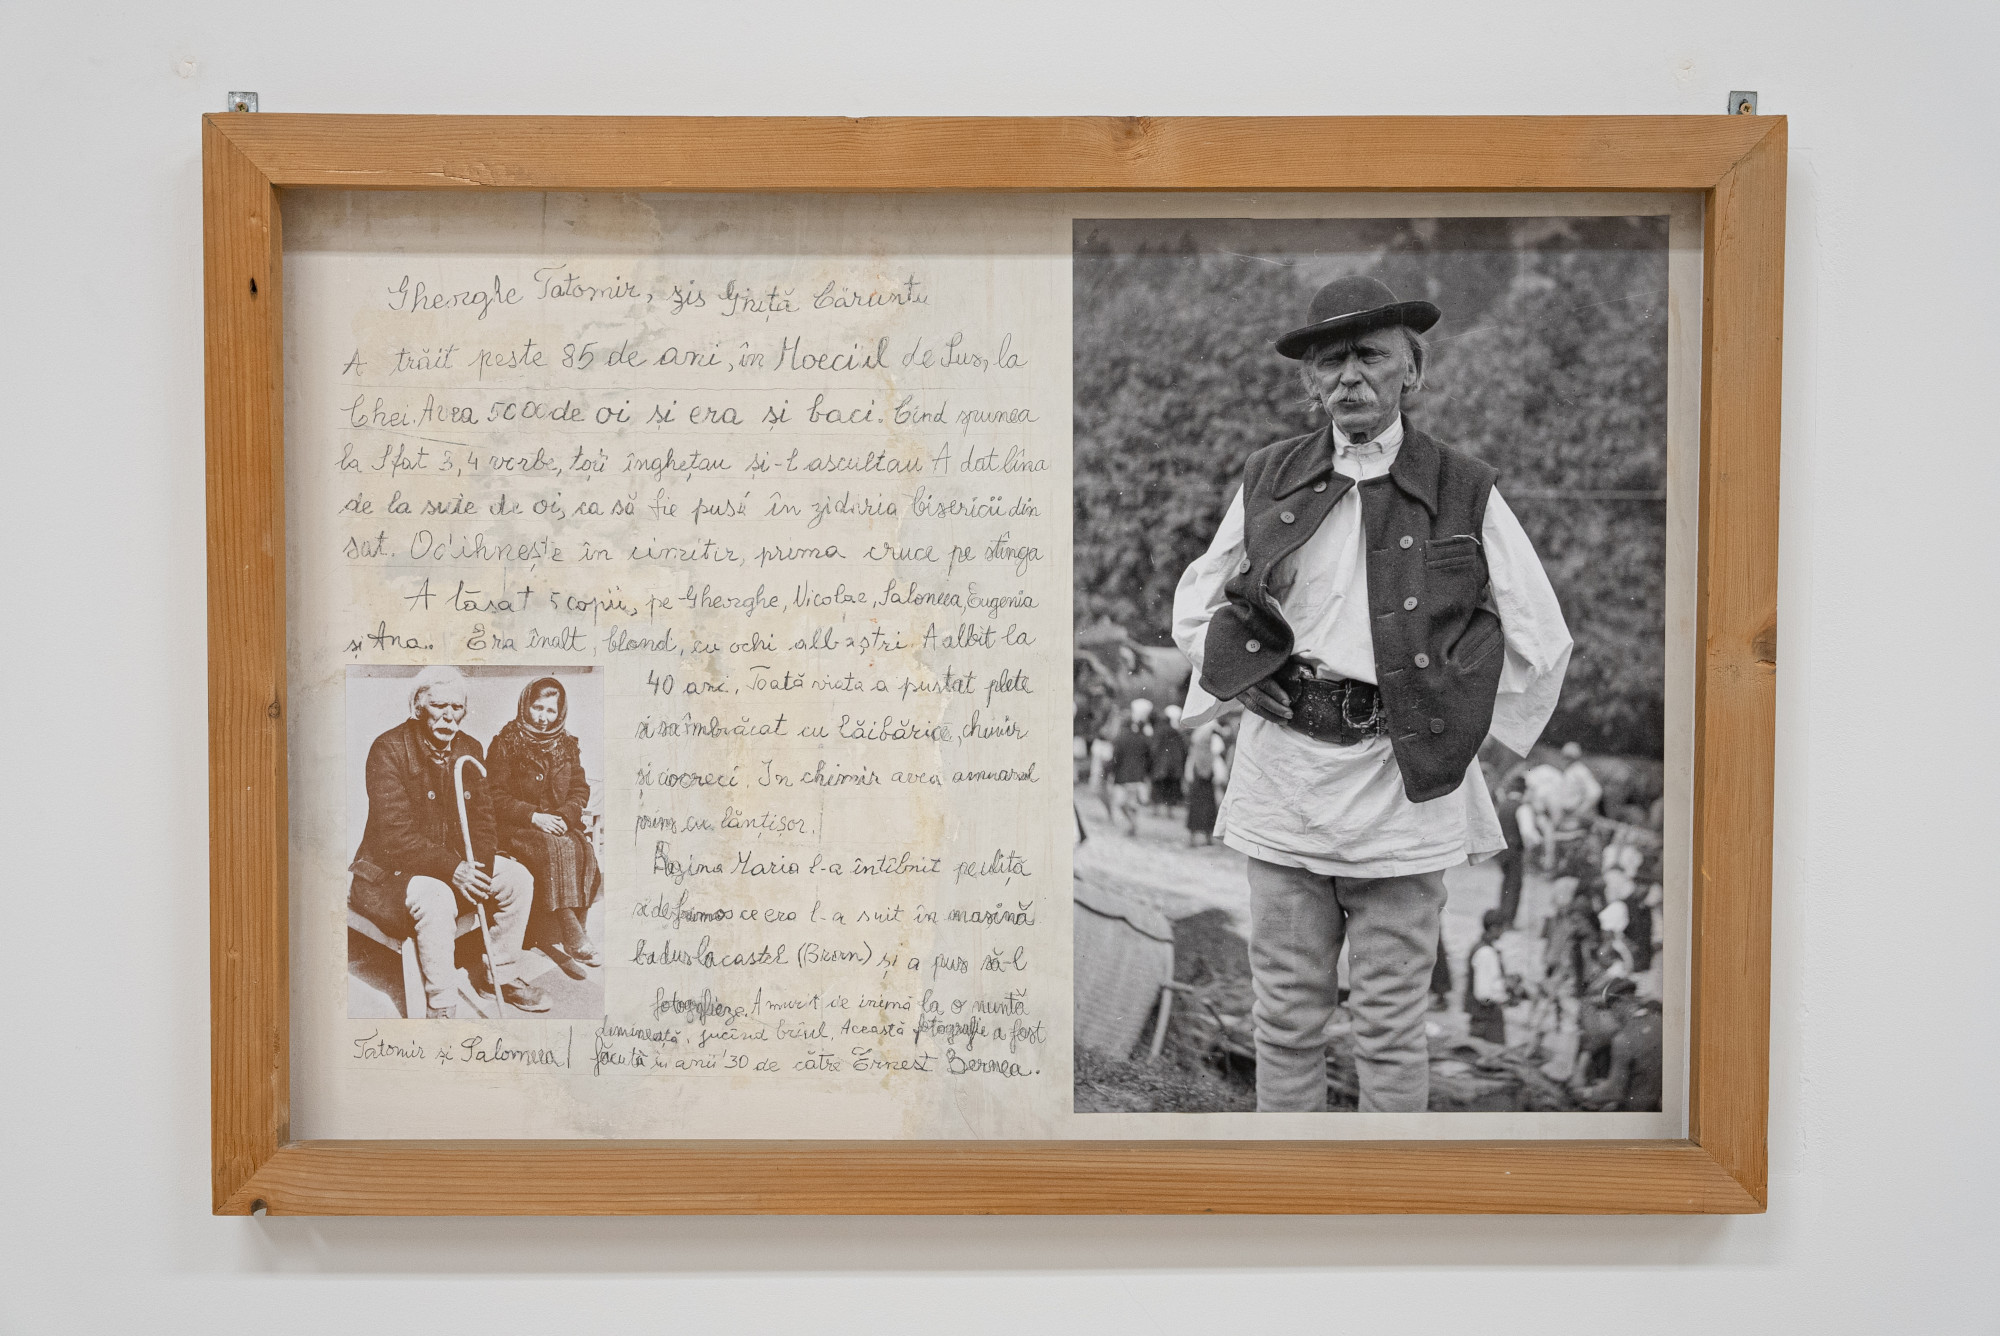 Gheorghe Tatomir, zis Ghiță Căruntu
A trăit peste 85 de ani, în Moeciul de Sus, la
Chei. Avea 5000 de oi și era și baci. Cînd spunea
la Sfat 3, 4 vorbe, toți înghețau și-l ascultau A dat lîna
de la sute de oi, ca să fie pusă în zidăria bisericii din
sat. Odihnește în cimitir, prima cruce pe stînga
A lăsat 5 copii, pe Gheorghe, Nicolae, Salomeea, Eugenia
și Ana.. Era înalt, blond, cu ochi albaștri. A albit la
40 ani. Toată viața a purtat plete
și s-a îmbrăcat cu lăibărică, chimir
și cioreci. In chimir avea amnarul
prins cu lănțișor.
Regina Maria l-a întîlnit pe uliță
și de frumos ce era l-a suit în mașină
l-a dus la castel (Bran) și a pus să-l
fotografieze. A murit de inimă la o nuntă
dimineață, jucînd brîul. Această fotografie a fost
făcută în anii '30 de către Ernest Bernea.
Tatomir și Salomeea